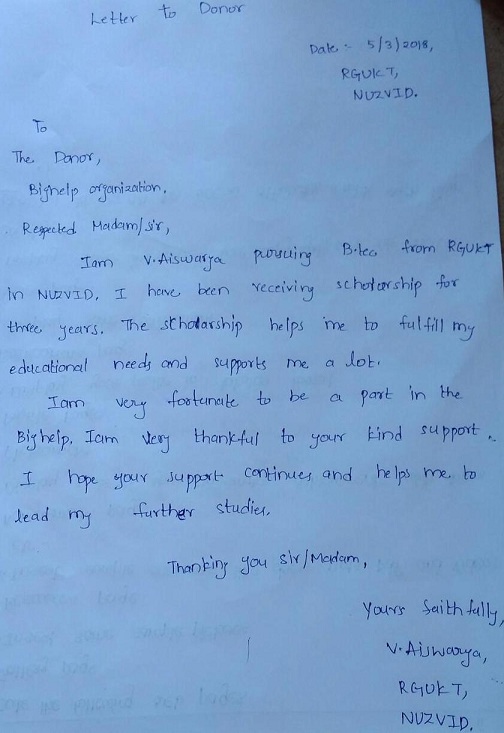 Letter to Donor
Date :- 5/3/2018,
RGUKT,
NUZVID.
To
The Donor,
Bighelp organization,
Respected Madam/sir,
Iam V.Aiswarya pursuing B.tec from RGUKT
in NUZVID, I have been receiving scholarship for
three years. The scholarship helps me to fulfill my
educational needs and supports me a lot.
Iam very fortunate to be a part in the
Bighelp. Iam very thankful to your kind support.
I hope your support continues and helps me to
lead my further studies.
Thanking you sir/Madam,
Yours faithfully,
V.Aiswarya,
RGUKT,
NUZVID.